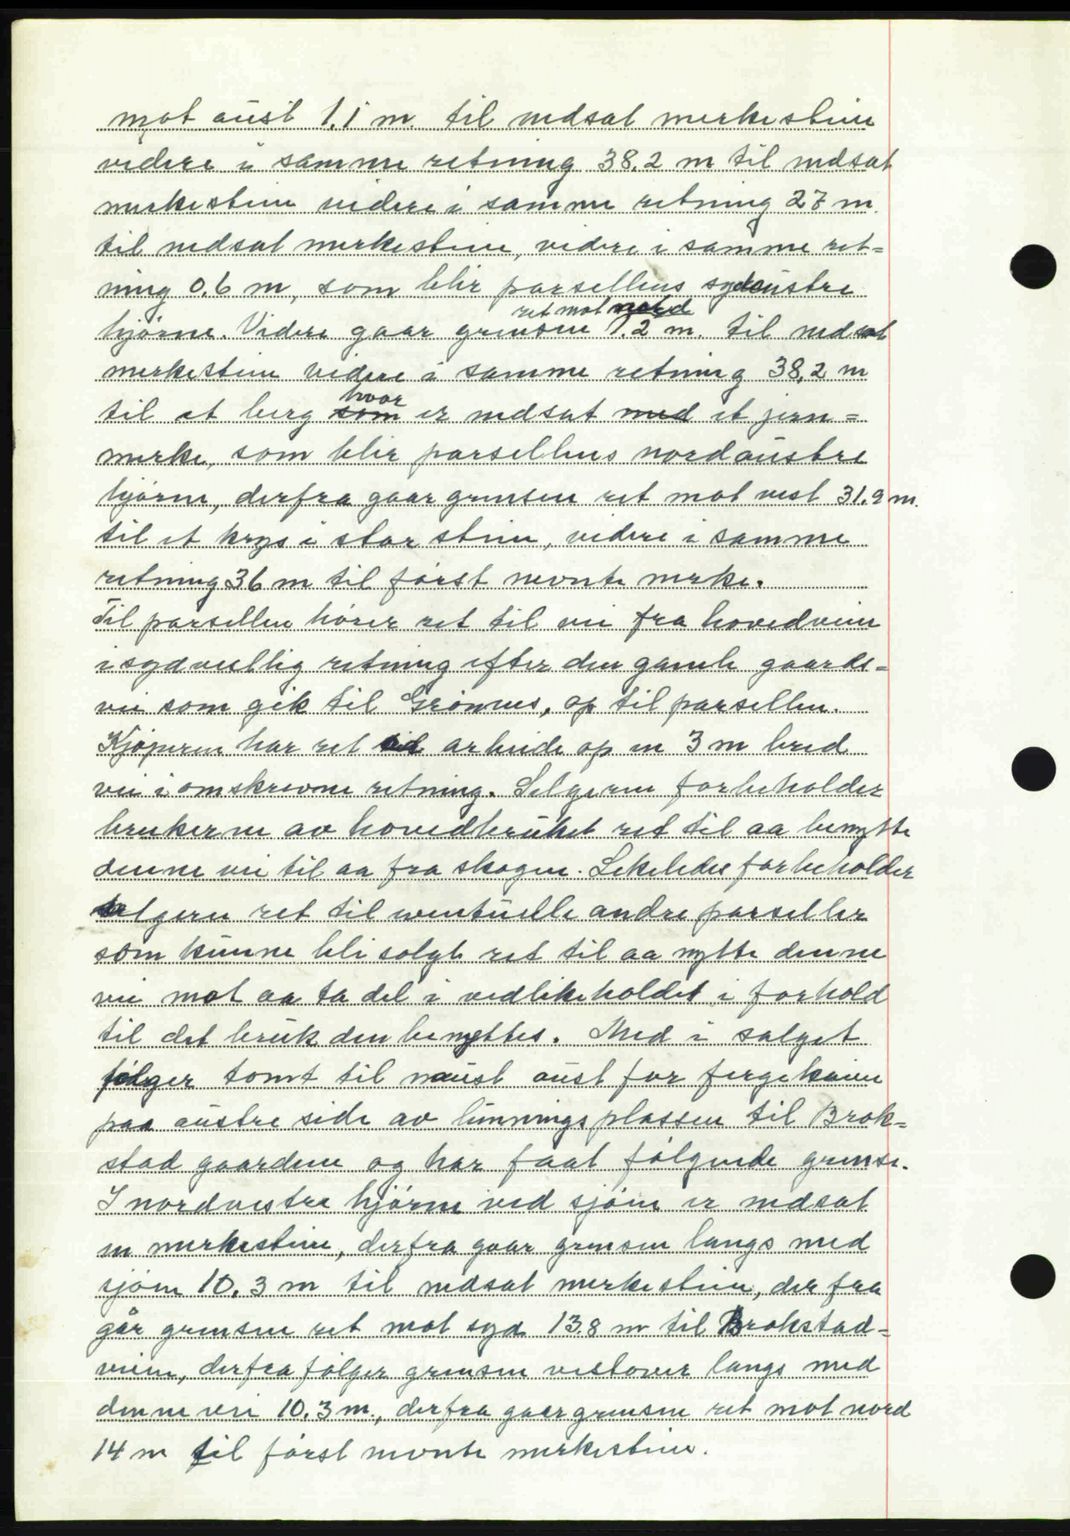 mot aust 1.1 m. til nedsat merkestein
videre i samme retning 38.2 m til nedsat
merkestein videre i samme retning 27 m.
til nedsat merkestein, videre i samme ret=
ning 0.6 m, som blir parsellens sydaustre
ret mot nord
hjørne. Videre gaar grensen 1.2 m. til nedsat
merkestein videre i samme retning 38,2 m
hvor
til et berg som er nedsat med et jern=
merke, som blir parsellens nordaustre
hjørne, derfra gaar grensen ret mot vest 31.9 m.
til et kryss i stor stein, videre i samme
retning 36 m til først nevnte merke.
Til parsellen hører ret til vei fra hovedveien
i sydvestlig retning efter den gamle gaards=
vei som gik til Grønnes, op til parsellen.
Kjøperen har ret til arbeide op en 3 m bred
vei i omskrevne retning. Selgeren forbeholder
brukerne av hovedbruket ret til aa benytte
denne vei til aa fra skogen. Likeledes forbeholder
selgeren ret til eventuelle andre parseller
som kunne bli solgt ret til aa nytte denne
vei mot aa ta del i vedlikeholdet i forhold
til det bruk den benyttes. Med i salget
følger tomt til naust aust for fergekaien
paa austre side av linningsplassen til Brok=
stad gaardene og har faat følgende grense.
I nordvestre hjørne ved sjøen er nedsat
en merkestein, derfra gaar grensen langs med
sjøen 10.3 m til nedsat merkestein, derfra
går grensen ret mot syd 13.8 m til Brokstad=
veien, derfra følger grensen vestover langs med
denne vei 10.3 m., derfra gaar grensen ret mot nord
14 m til først nevnte merkestein.